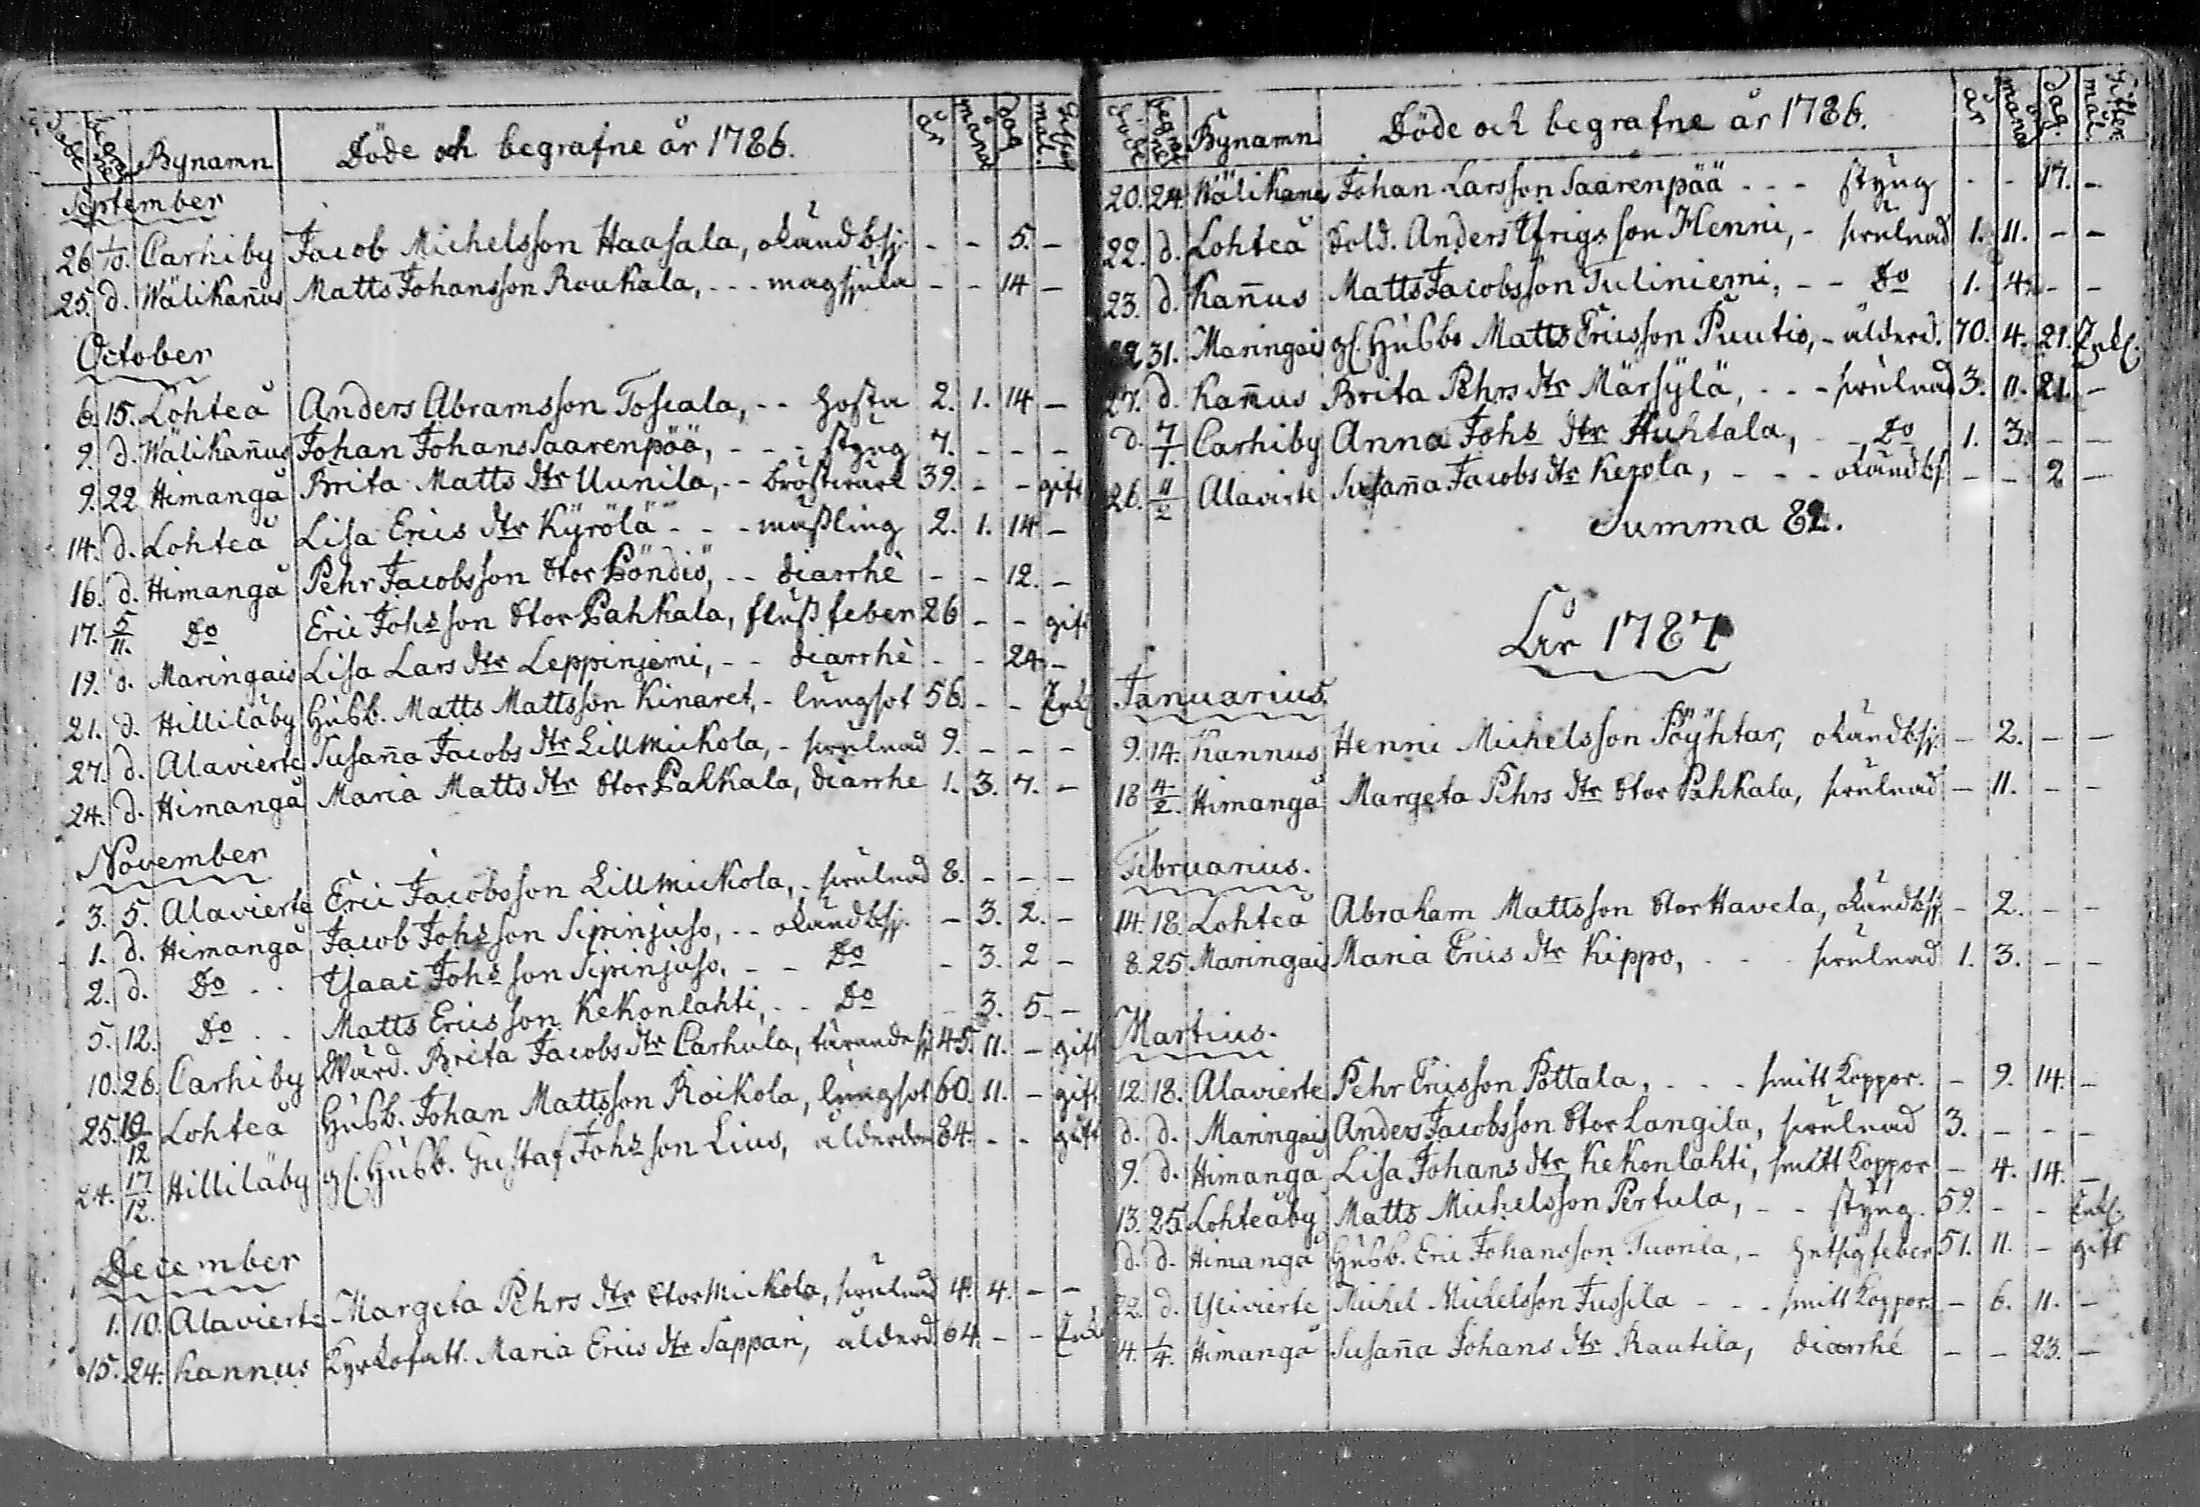 Döde begrafne Bynamn Döde och begrafne år 1786. år månd dag Gifter mål.
September
26 1/10. Carhiby Jacob Michelsson Haasala, okänd bsj. - - 5. -
25. d. Wälikan̄us Matts Johansson Roukala, - - - magsjuka - - 14 -
October
6. 15. Lohteå Anders Abramsson Toscala, - - hosta 2. 1. 14 -
9. d. Wälikan̄us Johan Johans Saarenpää, - - - styng 7. - - -
9. 22 Himangå Brita Matts dtr Uunila, - - bröstwärk 39. - - gift
14. d. Lohteå Lisa Erics dtr Kyrölä - - - mäßling 2. 1. 14 -
16. d. Himangå Pehr Jacobsson Stor Pöndiö, - - diarrhé - - 12. -
17. 5/11. Do Eric Johs son Stor Pahkala, flußfeber 26 - - gift
19. d. Maringais Lisa Lars dtr Leppinjemi, - - diarrhé - - 24. -
21. d. Hilliläby Husb. Matts Mattsson Kinaret, - lungsot 56. - - Enkl
27. d. Alavierte Susan̄a Jacobs dtr Lillmickola, - swulnad 9. - - -
24. d. Himangå Maria Matts dtr Stor Pahkala, diarrhe 1. 3. 7. -
November
3. 5. Alavierte Eric Jacobsson Lillmickola, - swulnad 8. - - -
1. d. Himangå Jacob Johs son Sipinjuso, - - okänd bsj. - 3. 2. -
2. d. Do - - Isaac Johs son Sipinjuso, - - Do - 3. 2 -
5. 12. Do - - Matts Erics son Kekonlahti, - - Do - 3. 5. -
10. 26. Carhiby Wärd. Brita Jacobs dtr Carhula, tärande sj 45. 11. - gift
25. 10/12 Lohteå Husb. Johan Mattsson Roikola, lungsot 60. 11. - gift
24. 17/12. Hilliläby gl. Husb. Gustaf Johs son Lius, ålderdom 84. - - gift
December
1. 10. Alavierte - Margeta Pehrs dtr Stor Mickola, swulnad 4. 4. - -
15. 24. Kannus Maria Erics dtr Sappari, ålderd 64. - - Enk
Döde begrafne Bynamn Döde och begrafne år 1786. år månd dag. Gifter mål.
20. 24. Wälikanus Johan Larsson Saarenpää - - - styng - - 17. -
22. d. Lohteå Sold. Anders son Henni, - swulnad 1. 11. - -
23. d. Kan̄us Matts Jacobsson Tuliniemi, - - Do 1. 4. - -
22 31. Maringais gl. Husbo Matts Ericsson Puutio, - ålderd. 70. 4. 21. Enkl.
27. d. Kan̄us Brita Pehrs dtr Märsylä, - - - swulnad 3. 11. 21. -
d. 7/1. Carhiby Anna Johs dtr Huhtala, - - Do 1. 3. - -
26. 11/2 Alavirte Susan̄a Jacobs dtr Kerola, - - - okänd bsj - - 2 -
Summa 82.
År 1787
Januarius.
9. 14. Kannus Henni Michelsson Pöyhtar, okänd bsj. - 2. - -
18 4/2. Himangå Margeta Pehrs dtr Stor Pahkala, swulnad - 11. - -
Februarius.
14. 18. Lohteå Abraham Mattsson Stor Havela, okänd bsj - 2. - -
8. 25 Maringais Maria Erics dtr Kippo, - - - swulnad 1. 3. - -
Martius.
12. 18. Alavierte Pehr Ericsson Pottala, - - - smittkoppor. - 9. 14. -
d. d. Maringais Anders Jacobsson Stor Langila, swulnad 3. - - -
9. d. Himangå Lisa Johans dtr Kekonlahti, smittkoppor - 4. 14. -
13. 25. Lohteåby Matts Michelsson Pertula, - - styng. 59. - - Enkl.
d. d. Himangå Husb. Eric Johansson Tuorila, - hetsigfeber 51. 11. - gift
22. d. Ylivierte Michel Michelsson Jussila - - - smittkoppor. - 6. 11. -
4. 1/4. Himangå Susan̄a Johans dtr Rautila, diarrhé - - 23. -